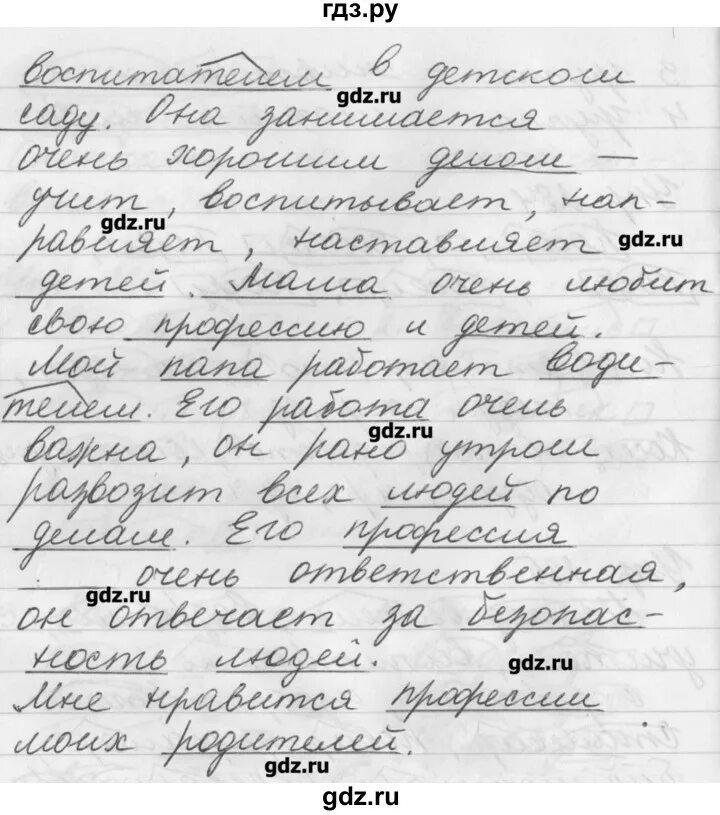 гдз.ру
воспитателем в детском
gdz.ru
саду. Она занимается
очень хорошим делом —
учит, воспитывает, нап-
gdz.ru
равляет, наставляет gdz.ru
детей. Маша очень любит
свою профессию и детей.
Мой папа работает води-
телем. Его работа очень
gdz.ru
важна, он рано утром
развозит всех людей по
делам. Его профессия
gdz.ru очень ответственная,
он отвечает за безопас-
ность людей. gdz.ru
Мне нравится профессии
моих родителей.
gdz.ru
gdz.ru